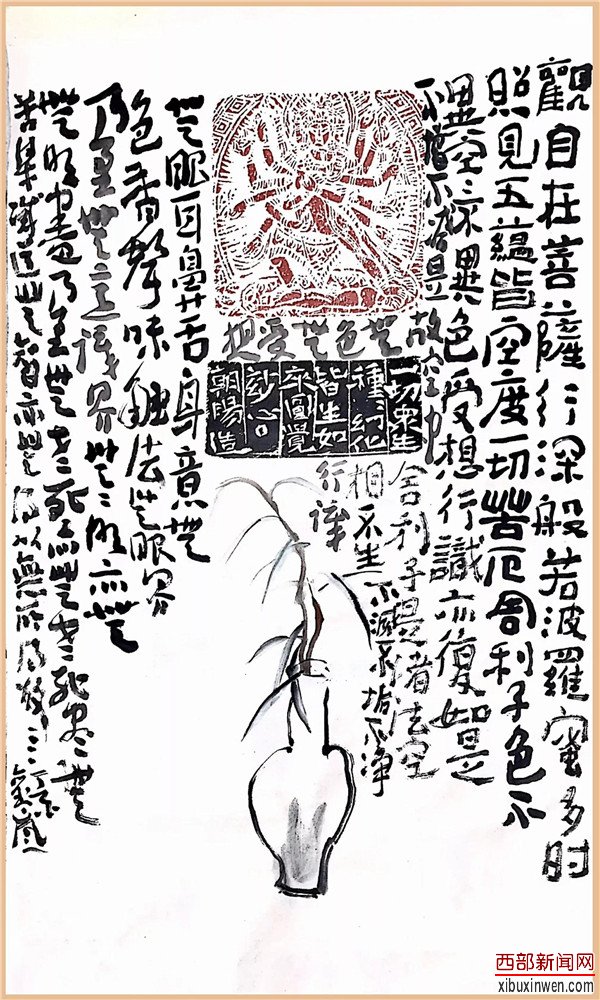 觀自在菩薩行深般若波羅蜜多时
照見五蘊皆空度一切苦厄舍利子色不
異空空不異色受想行識亦復如是
舍利子是諸法空
相不生不滅不垢不净
不增不减是故空中
無色無受想
行識
一切眾生
種種幻化
皆生如
來圓覺
妙心
朝陽造
無眼耳鼻舌身意無
色香聲味触法無眼界
乃至無意識界無無明亦無
無明盡乃至無老死亦無老死盡無
苦集滅道無智亦無得以無所得故
西部新闻网
xibuxinwen.com